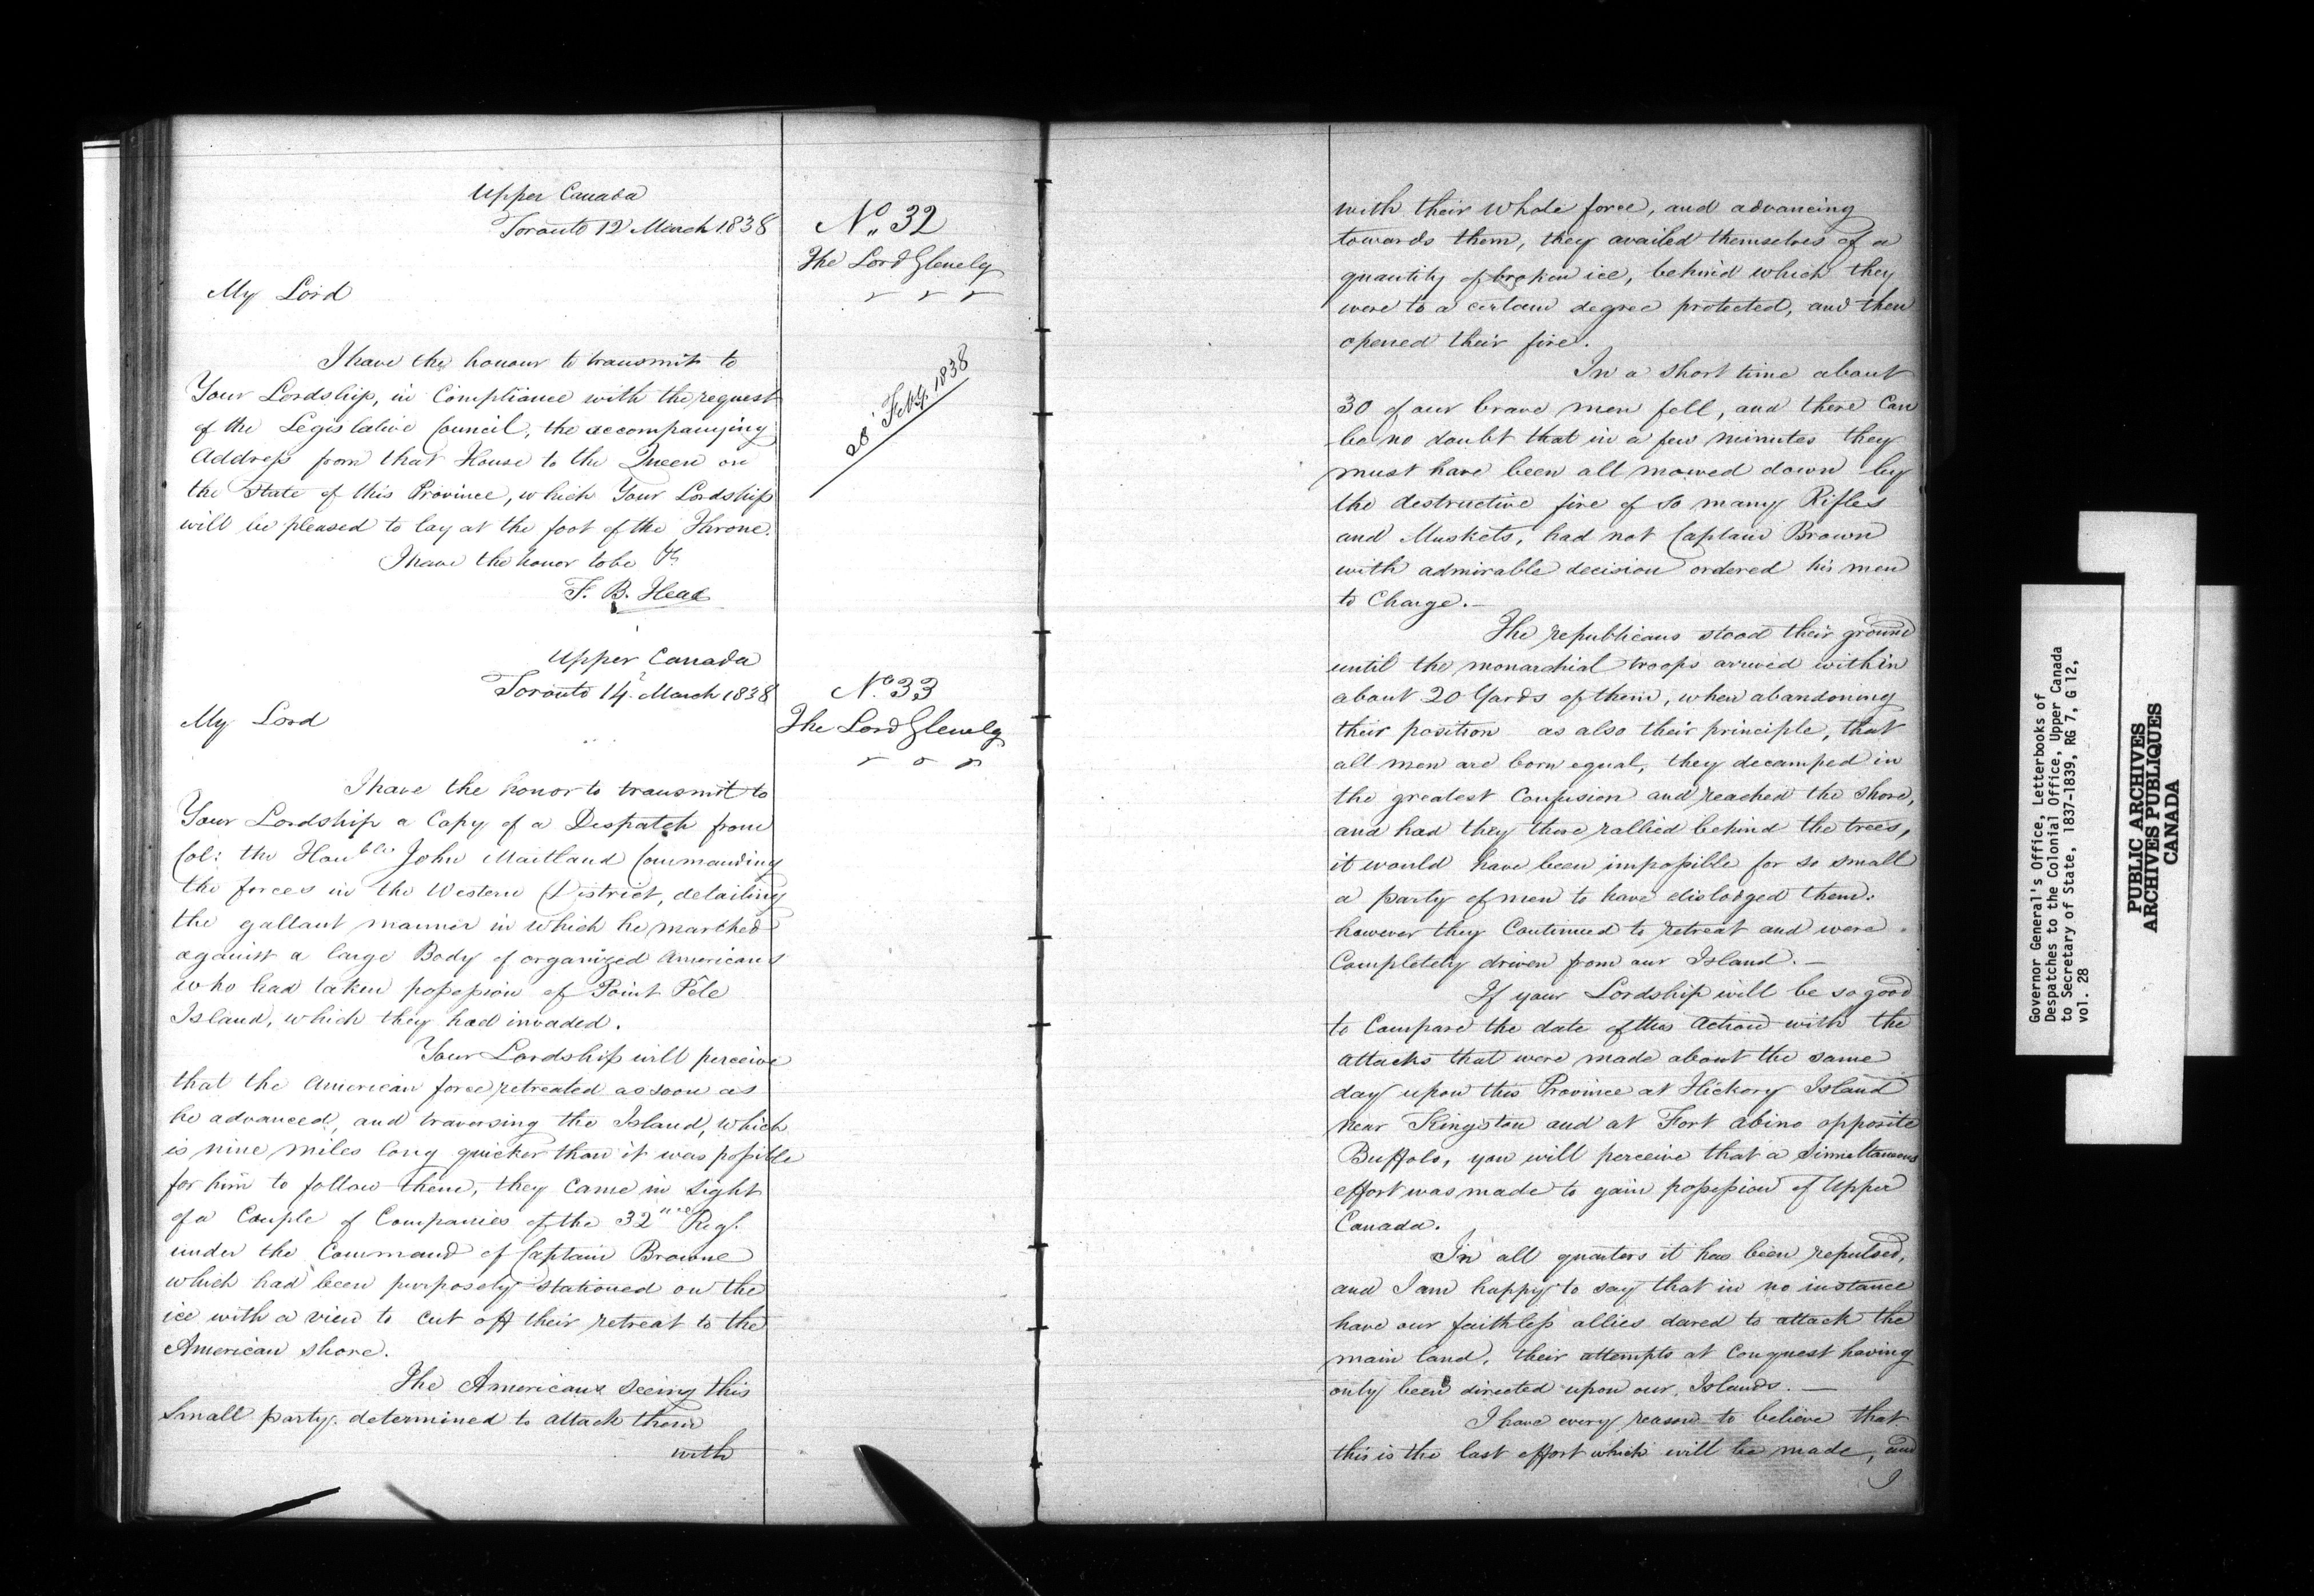 Upper Canada
Toronto 12 March 1838
No. 32
The Lord Glenelg
My Lord
28 Feby. 1838
I have the honour to transmit to
Your Lordship, in Compliance with the request
of the Legislative Council, the accompanying
Address from that House to the Queen on
the State of this Province, which Your Lordship
will be pleased to lay at the foot of the Throne.
I have the honor to be &c
F. B. Head
Upper Canada
Toronto 14 March 1838
No. 33
The Lord Glenelg
My Lord
I have the honor to transmit to
Your Lordship a Copy of a Despatch from
Col: the Honble John Maitland Commanding
the forces in the Western District, detailing
the gallant manner in which he marched
against a large Body of organized Americans
who had taken possession of Point Pele
Island, which they had invaded.
Your Lordship will perceive
that the American force retreated as soon as
he advanced, and traversing the Island, which
is nine miles long quicker than it was possible
for him to follow them, they came in sight
of a Couple of Companies of the 32nd Regt.
under the Command of Captain Browne
which had been purposely stationed on the
ice with a view to cut off their retreat to the
American shore.
The Americans seeing this
Small party determined to attack them
with
with their whole force, and advancing
towards them, they availed themselves of a
quantity of broken ice, behind which they
were to a certain degree protected, and then
opened their fire.
In a short time about
30 of our brave men fell, and there Can
be no doubt that in a few minutes they
must have been all mowed down by
the destructive fire of so many Rifles
and Muskets, had not Captain Brown
with admirable decision ordered his men
to Charge.—
The republicans stood their ground
until the monarchial troops arrived within
about 20 Yards of them, when abandoning
their position as also their principle, that
all men are born equal, they decamped in
the greatest Confusion and reached the Shore,
and had they there rallied behind the trees,
it would have been impossible for so small
a party of men to have dislodged them.
however they Continued to retreat and were
Completely driven from our Island.—
If your Lordship will be so good
to Compare the date of this Action with the
attacks that were made about the same
day upon this Province at Hickory Island
near Kingston and at Fort Abino opposite
Buffalo, you will perceive that a Simultaneous
effort was made to gain possession of Upper
Canada.
In all quarters it has been repulsed,
and I am happy to say that in no instance
have our faithless allies dared to attack the
main land, their attempts at Conquest having
only been directed upon our Islands.—
I have every reason to believe that
this is the last effort which will be made, and
I
Governor General's Office, Letterbooks of
Despatches to the Colonial Office, Upper Canada
to Secretary of State, 1837-1839, RG 7, G 12,
vol. 28
PUBLIC ARCHIVES
ARCHIVES PUBLIQUES
CANADA